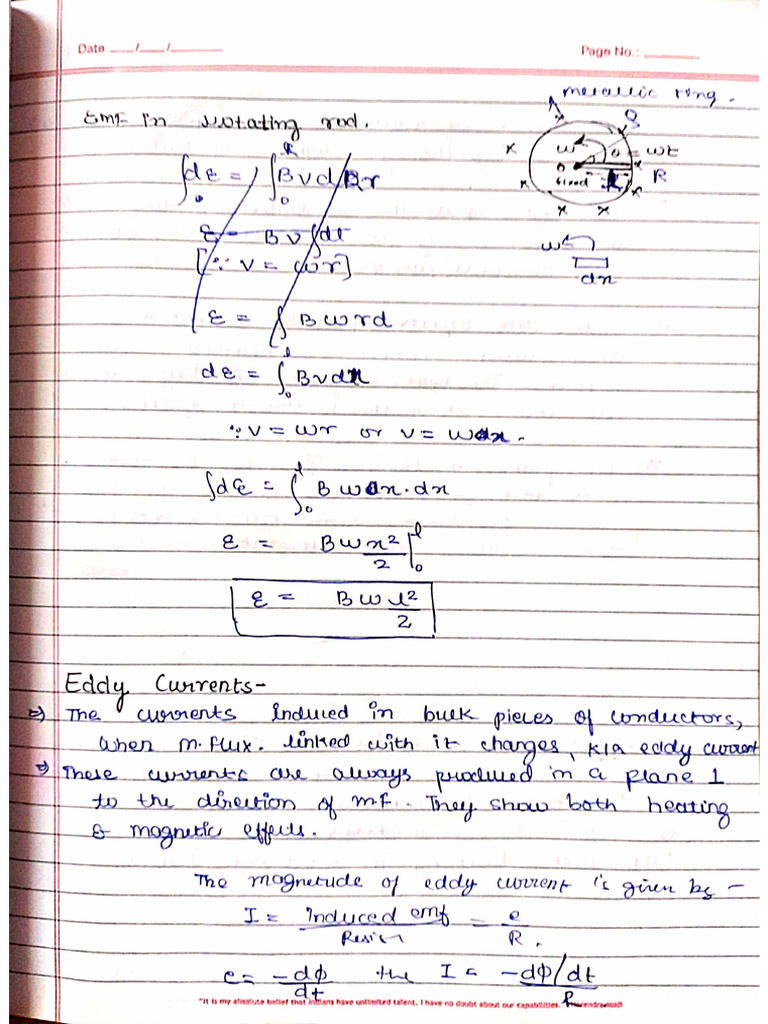 Date ___/___/______
Page No.: ______
metallic ring.
EMF in rotating rod.
Q
x ω θ = ωt
O x R
x fixed x
x x
∫dε = ∫Bvdr
ε = Bv∫dt
[∵ v = ωr]
ω
dx
ε = ∫ Bωrd
dε = ∫₀ˡ Bvdx
∵ v = ωr or v = ωx.
∫dε = ∫₀ˡ Bωx.dx
ε = Bωx²/2 |₀ˡ
ε = Bωl²/2
Eddy Currents-
=> The currents Induced in bulk pieces of conductors,
when m.flux. linked with it changes, k/a eddy current
=> These currents are always produced in a plane ⊥
to the direction of m.f. They show both heating
& magnetic effects.
The magnetude of eddy current is given by -
I = Induced emf/Resis = e/R.
e = -dΦ/dt the I = -dΦ/dt/R
"It is my absolute belief that Indians have unlimited talent. I have no doubt about our capabilities.